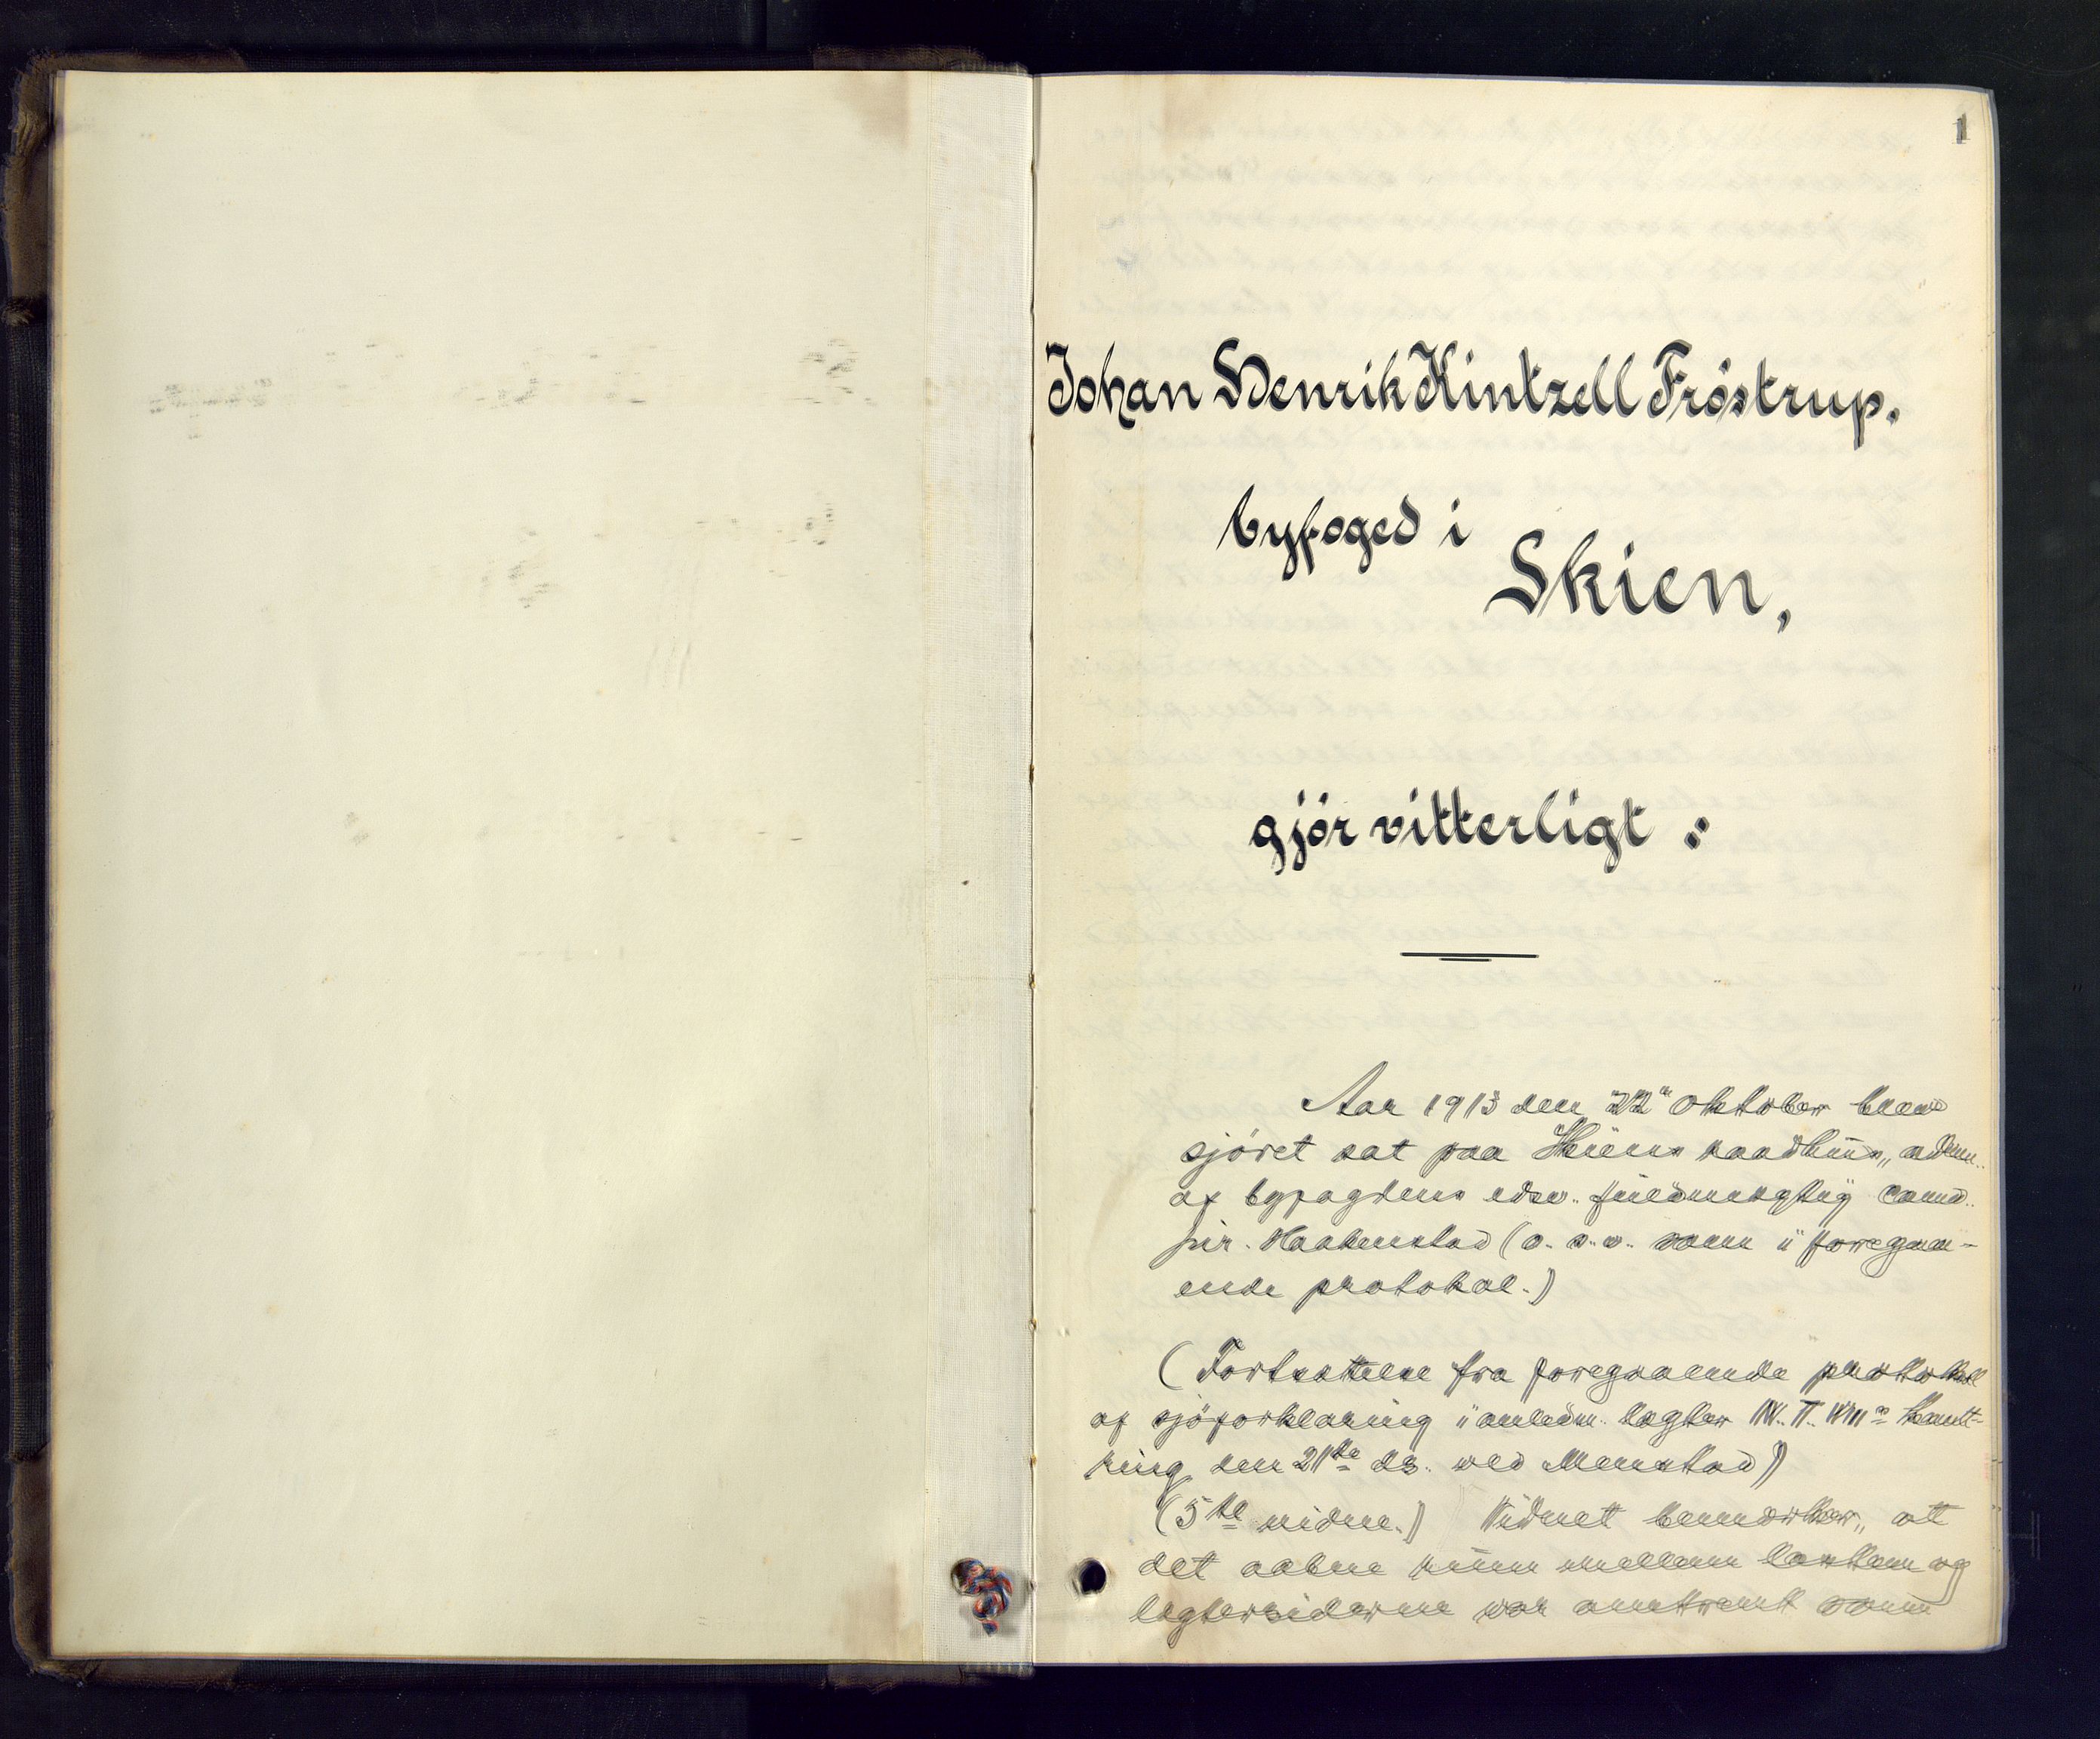 1
Johan Henrik Kintzell Fróstrup.
byfoged i
Skien,
gjór vitterligt :
Aar 1913 den 22' Oktober blev
sjóret sat paa Skiens raadhus, adm.
af byfogdens edsv. fuldmægtig cand.
jur. Haakenstad (o. s. v. som i foregaa-
ende protokol.)
(Fortsættelse fra foregaaende protokol
af sjöforklaring i anledn. lægter kant-
ring den 21de ds. ved Menstad)
(5te vidne.) Vidnet bemærker, at
det aabne rum mellem lasten og
lægtersiderne var omtrent som